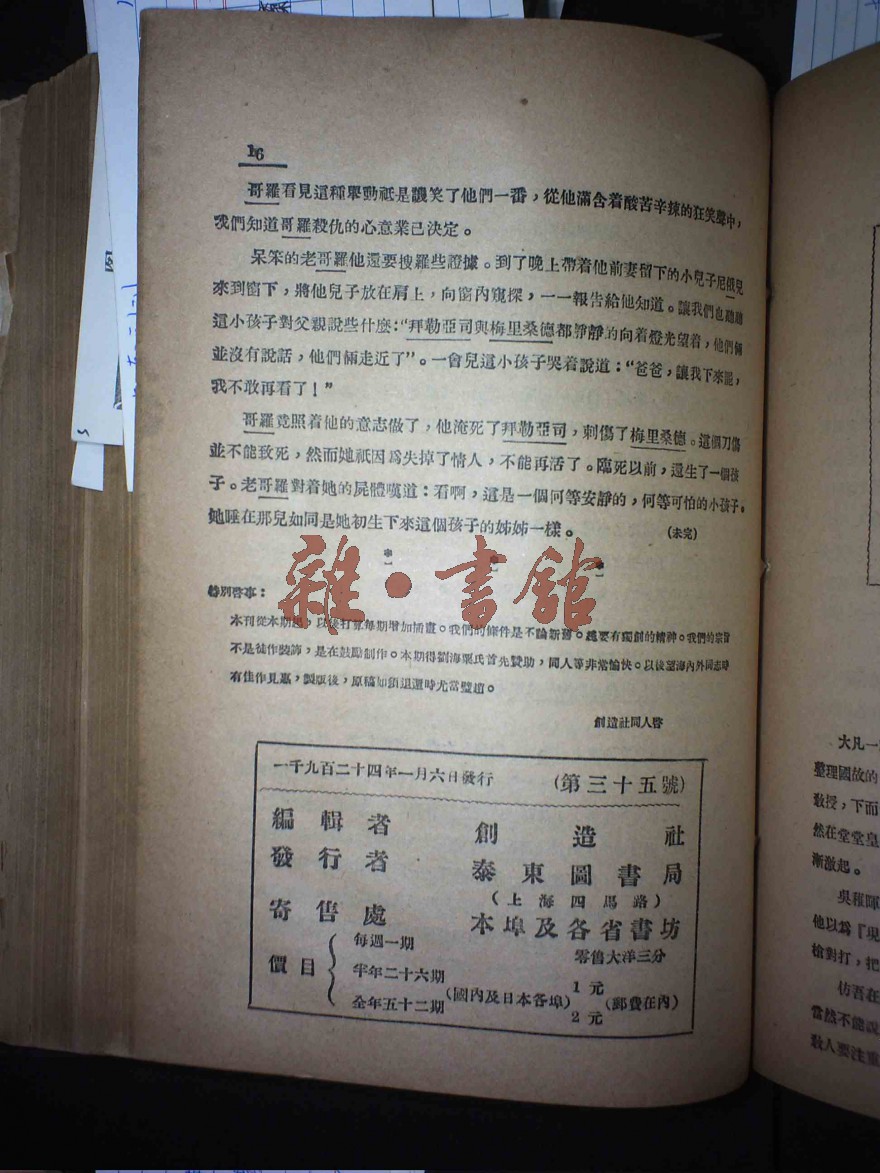 16
哥羅看見這種舉動祇是譏笑了他們一番，從他滿含着酸苦辛辣的狂笑聲中，
我們知道哥羅殺仇的心意業已決定。
呆笨的老哥羅他還要搜羅些證據。到了晚上帶着他前妻留下的小兒子尼俄兒
來到窗下，將他兒子放在肩上，向窗內窺探，一一報告給他知道。讓我們也聽聽
這小孩子對父親說些什麼：“拜勒亞司與梅里桑德都靜靜的向着燈光望着，他們倆
並沒有說話，他們倆走近了”。一會兒這小孩子哭着說道：“爸爸，讓我下來罷，
我不敢再看了！”
哥羅竟照着他的意志做了，他淹死了拜勒亞司，刺傷了梅里桑德。這個刀傷
並不能致死，然而她祇因爲失掉了情人，不能再活了。臨死以前，還生了一個孩
子。老哥羅對着她的屍體嘆道：看啊，這是一個何等安靜的，何等可怕的小孩子。
她睡在那兒如同是她初生下來這個孩子的姊姊一樣。 （未完）
雜·書館
特別啓事：
本刊從本期起，以後打算每期增加插畫。我們的條件是不論新舊。總要有獨創的精神。我們的宗旨
不是徒作裝飾，是在鼓勵制作。本期得劉海粟氏首先贊助，同人等非常愉快。以後望海內外同志時
有佳作見惠，製版後，原稿如須退還時尤當璧趙。
創造社同人啓
一千九百二十四年一月六日發行 （第三十五號）
編輯者 創造社
發行者 泰東圖書局
（上海四馬路）
寄售處 本埠及各省書坊
價目
每週一期 零售大洋三分
半年二十六期 1元
（國內及日本各埠） （郵費在內）
全年五十二期 2元
大凡一
整理國故的
敎授，下而
然在堂堂皇
漸激起。
吳稚暉
他以爲『現
槍對打，把
仿吾在
當然不能說
敎人要注重